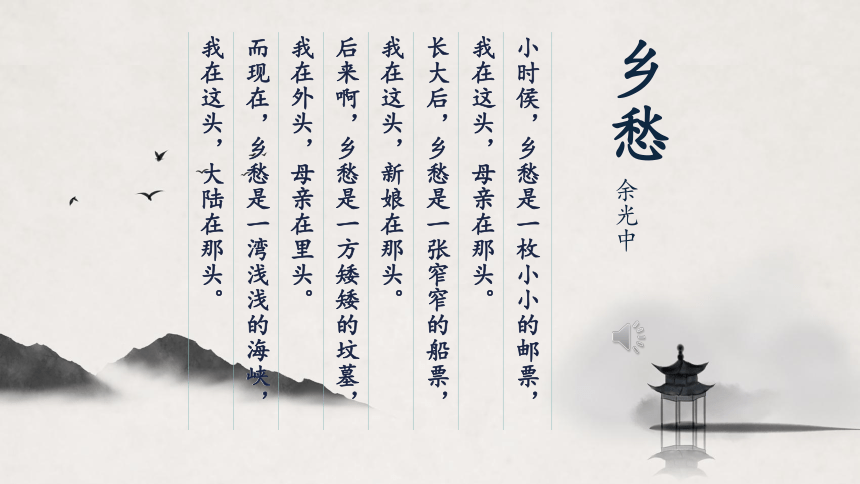 乡愁
余光中
小时侯，乡愁是一枚小小的邮票，
我在这头，母亲在那头。
长大后，乡愁是一张窄窄的船票，
我在这头，新娘在那头。
后来啊，乡愁是一方矮矮的坟墓，
我在外头，母亲在里头。
而现在，乡愁是一湾浅浅的海峡，
我在这头，大陆在那头。